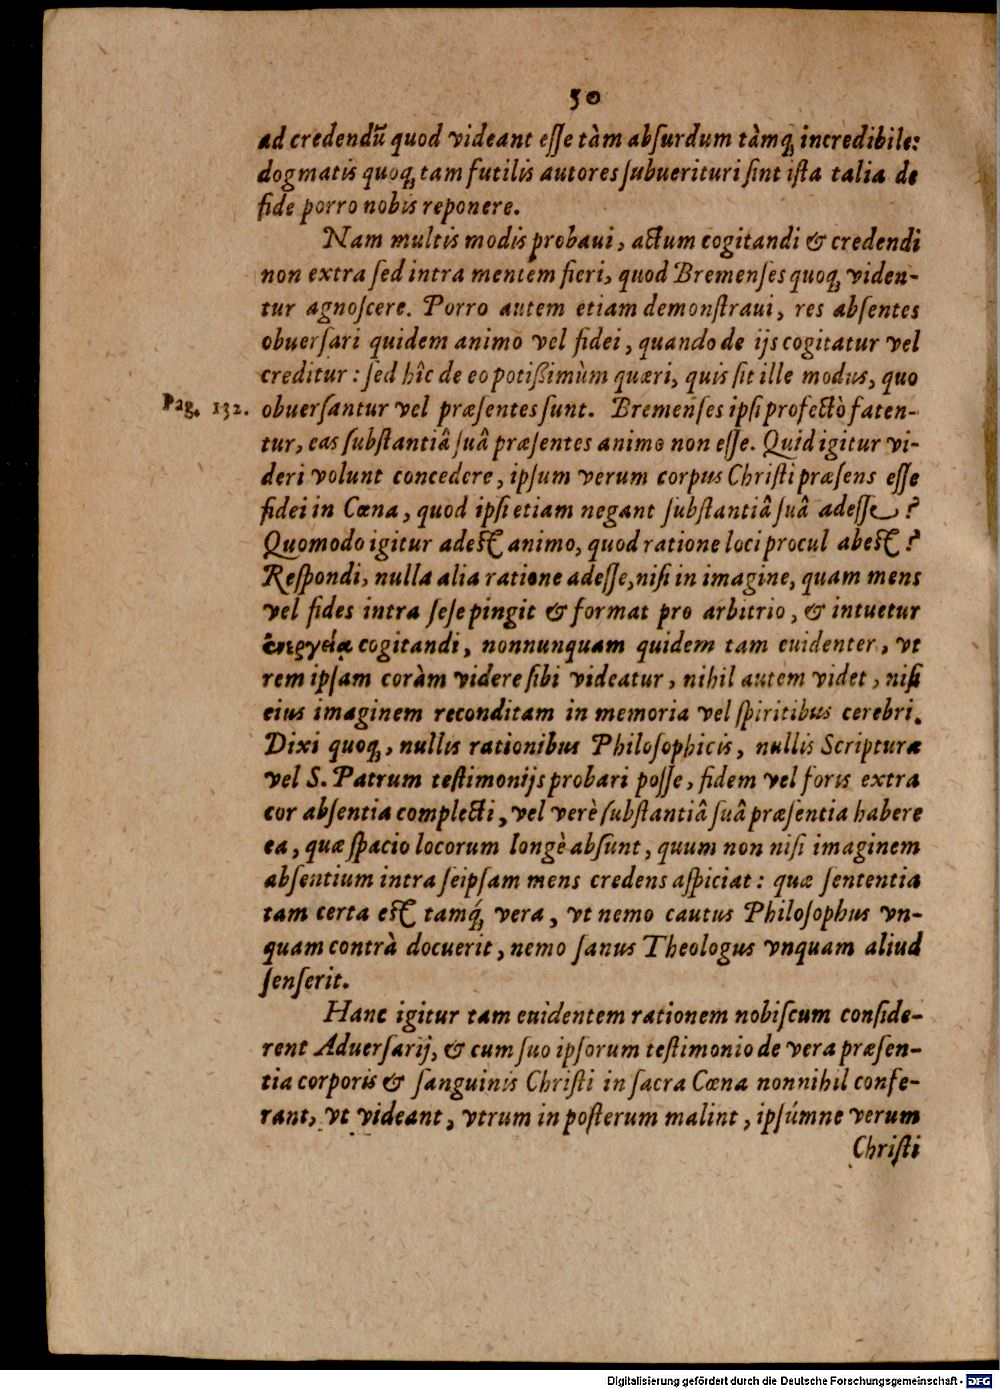 50
ad credendũ quod videant eſſe tàm abſurdum tàmq́; incredibile:
dogmatis quoq; tam futilis autores ſubuerituri ſint iſta talia de
fide porro nobis reponere.
Nam multis modis probaui, actum cogitandi & credendi
non extra ſed intra mentem fieri, quod Bremenſes quoq; viden-
tur agnoſcere. Porro autem etiam demonſtraui, res abſentes
obuerſari quidem animo vel fidei, quando de ijs cogitatur vel
creditur: ſed hîc de eo potiſsimùm quæri, quis ſit ille modus, quo
Pag. 132. obuerſantur vel præſentes ſunt. Bremenſes ipſi profectò faten-
tur, eas ſubſtantiâ ſuâ præſentes animo non eſſe. Quid igitur vi-
deri volunt concedere, ipſum verum corpus Chriſti præſens eſſe
fidei in Cœna, quod ipſi etiam negant ſubſtantiâ ſuâ adeſſe?
Quomodo igitur adeſt animo, quod ratione loci procul abeſt?
Reſpondi, nulla alia ratione adeſſe, niſi in imagine, quam mens
vel fides intra ſeſe pingit & format pro arbitrio, & intuetur
ἐνεργείᾳ cogitandi, nonnunquam quidem tam euidenter, vt
rem ipſam coràm videre ſibi videatur, nihil autem videt, niſi
eius imaginem reconditam in memoria vel ſpiritibus cerebri.
Dixi quoq;, nullis rationibus Philoſophicis, nullis Scripturæ
vel S. Patrum teſtimonijs probari poſſe, fidem vel foris extra
cor abſentia complecti, vel verè ſubſtantiâ ſuâ præſentia habere
ea, quæ ſpacio locorum longè abſunt, quum non niſi imaginem
abſentium intra ſeipſam mens credens aſpiciat: quæ ſententia
tam certa eſt tamq́; vera, vt nemo cautus Philoſophus vn-
quam contrà docuerit, nemo ſanus Theologus vnquam aliud
ſenſerit.
Hanc igitur tam euidentem rationem nobiſcum conſide-
rent Aduerſarij, & cum ſuo ipſorum teſtimonio de vera præſen-
tia corporis & ſanguinis Chriſti in ſacra Cœna nonnihil confe-
rant, vt videant, vtrum in poſterum malint, ipſúmne verum
Chriſti
Digitalisierung gefördert durch die Deutsche Forschungsgemeinschaft - DFG